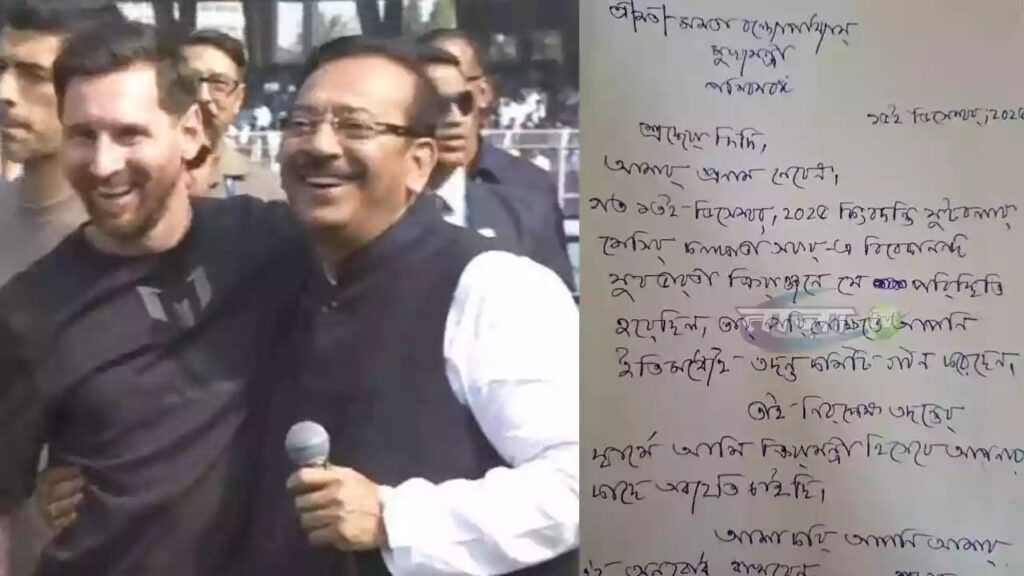 শ্রীমতী মমতা বন্দ্যোপাধ্যায়
মুখ্যমন্ত্রী
পশ্চিমবঙ্গ
১৫ই ডিসেম্বর, ২০২৫
শ্রদ্ধেয়া দিদি,
আমার প্রণাম নেবেন,
গত ১৩ই ডিসেম্বর, ২০২৫ কিংবদন্তি ফুটবলার
মেসির কলকাতা সফর-এ বিবেকানন্দ
যুবভারতী ক্রীড়াঙ্গনে যে পরিস্থিতি
হয়েছিল, তার পরিপ্রেক্ষিতে আপনি
ইতিমধ্যেই তদন্ত কমিটি গঠন করেছেন।
তাই নিরপেক্ষ তদন্তের
স্বার্থে আমি ক্রীড়ামন্ত্রী হিসেবে আপনার
কাছে অব্যাহতি চাইছি।
আশা করি আপনি আমার
অনুরোধ রাখবেন